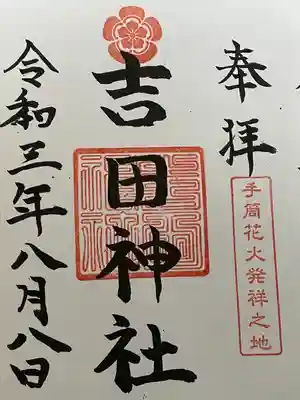 奉拝
手筒花火発祥之地
吉田神社
令和三年八月八日